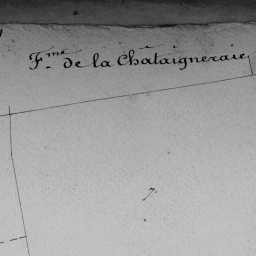 F.me de la Chataigneraie
7